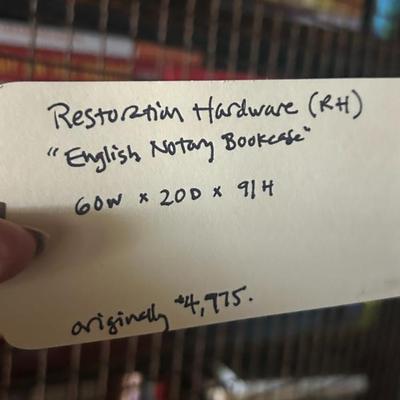 Restoration Hardware (RH)
"English Notary Bookcase"
60W × 20D × 91H
originally $4,975.